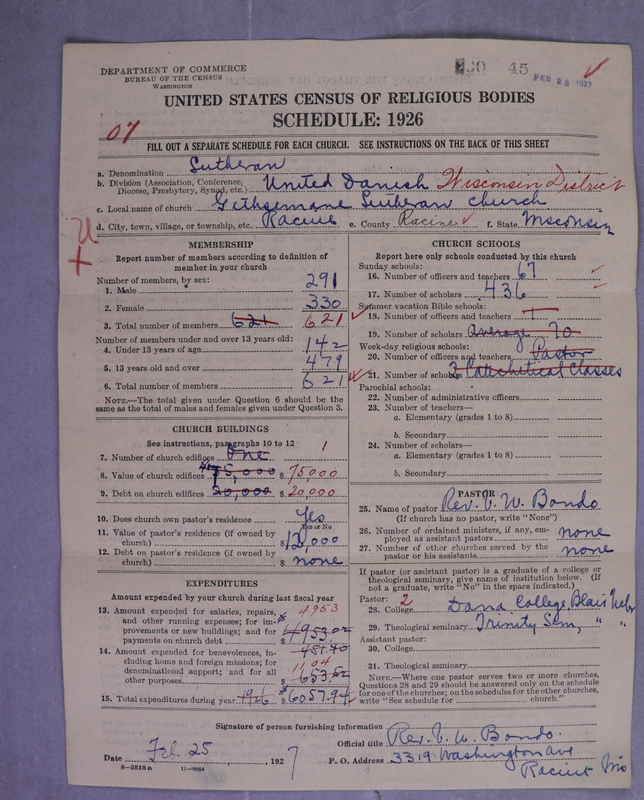 DEPARTMENT OF COMMERCE
BUREAU OF THE CENSUS
WASHINGTON
45
FEB 28 1927
UNITED STATES CENSUS OF RELIGIOUS BODIES
SCHEDULE: 1926
07
FILL OUT A SEPARATE SCHEDULE FOR EACH CHURCH. SEE INSTRUCTIONS ON THE BACK OF THIS SHEET
a. Denomination Lutheran
b. Division (Association, Conference, Diocese, Presbytery, Synod, etc.) United Danish Wisconsin District
c. Local name of church Gethsemane Lutheran Church
d. City, town, village, or township, etc. Racine e. County Racine f. State Wisconsin
MEMBERSHIP
Report number of members according to definition of
member in your church
Number of members, by sex:
1. Male 291
2. Female 330
3. Total number of members 621 621
Number of members under and over 13 years old:
4. Under 13 years of age 142
5. 13 years old and over 479
6. Total number of members 621
NOTE.—The total given under Question 6 should be the
same as the total of males and females given under Question 3.
CHURCH BUILDINGS
See instructions, paragraphs 10 to 12
7. Number of church edifices One 1
8. Value of church edifices 75,000 $ 75,000
9. Debt on church edifices 20,000 $ 20,000
10. Does church own pastor's residence Yes
Yes or No
11. Value of pastor's residence (if owned by
church) $ 12,000
12. Debt on pastor's residence (if owned by
church) $ none
EXPENDITURES
Amount expended by your church during last fiscal year
13. Amount expended for salaries, repairs, 4953
and other running expenses; for im-
provements or new buildings; and for
payments on church debt $ 4953.02
14. Amount expended for benevolences, in- 451.40
cluding home and foreign missions; for
denominational support; and for all 1104
other purposes $ 653.52
15. Total expenditures during year 1926 $ 6057.94
CHURCH SCHOOLS
Report here only schools conducted by this church
Sunday schools:
16. Number of officers and teachers 67
17. Number of scholars 436
Summer vacation Bible schools:
18. Number of officers and teachers 1
19. Number of scholars Average 70
Week-day religious schools:
20. Number of officers and teachers Pastor
21. Number of scholars 2 Catechetical Classes
Parochial schools:
22. Number of administrative officers
23. Number of teachers—
a. Elementary (grades 1 to 8)
b. Secondary
24. Number of scholars—
a. Elementary (grades 1 to 8)
b. Secondary
PASTOR
25. Name of pastor Rev. V. W. Bondo
(If church has no pastor, write "None")
26. Number of ordained ministers, if any, em-
ployed as assistant pastors none
27. Number of other churches served by the
pastor or his assistants none
If pastor (or assistant pastor) is a graduate of a college or
theological seminary, give name of institution below. (If
not a graduate, write "No" in the space indicated.)
Pastor: 2
28. College Dana College, Blair Nebr
29. Theological seminary Trinity Sem, " "
Assistant pastor:
30. College
31. Theological seminary
NOTE.—Where one pastor serves two or more churches,
Questions 28 and 29 should be answered only on the schedule
for one of the churches; on the schedules for the other churches,
write "See schedule for church."
Signature of person furnishing information
Official title Rev. V. W. Bondo.
Date Feb. 25 1927 P. O. Address 3319 Washington Ave
8-5518a 11-9054 Racine Wis